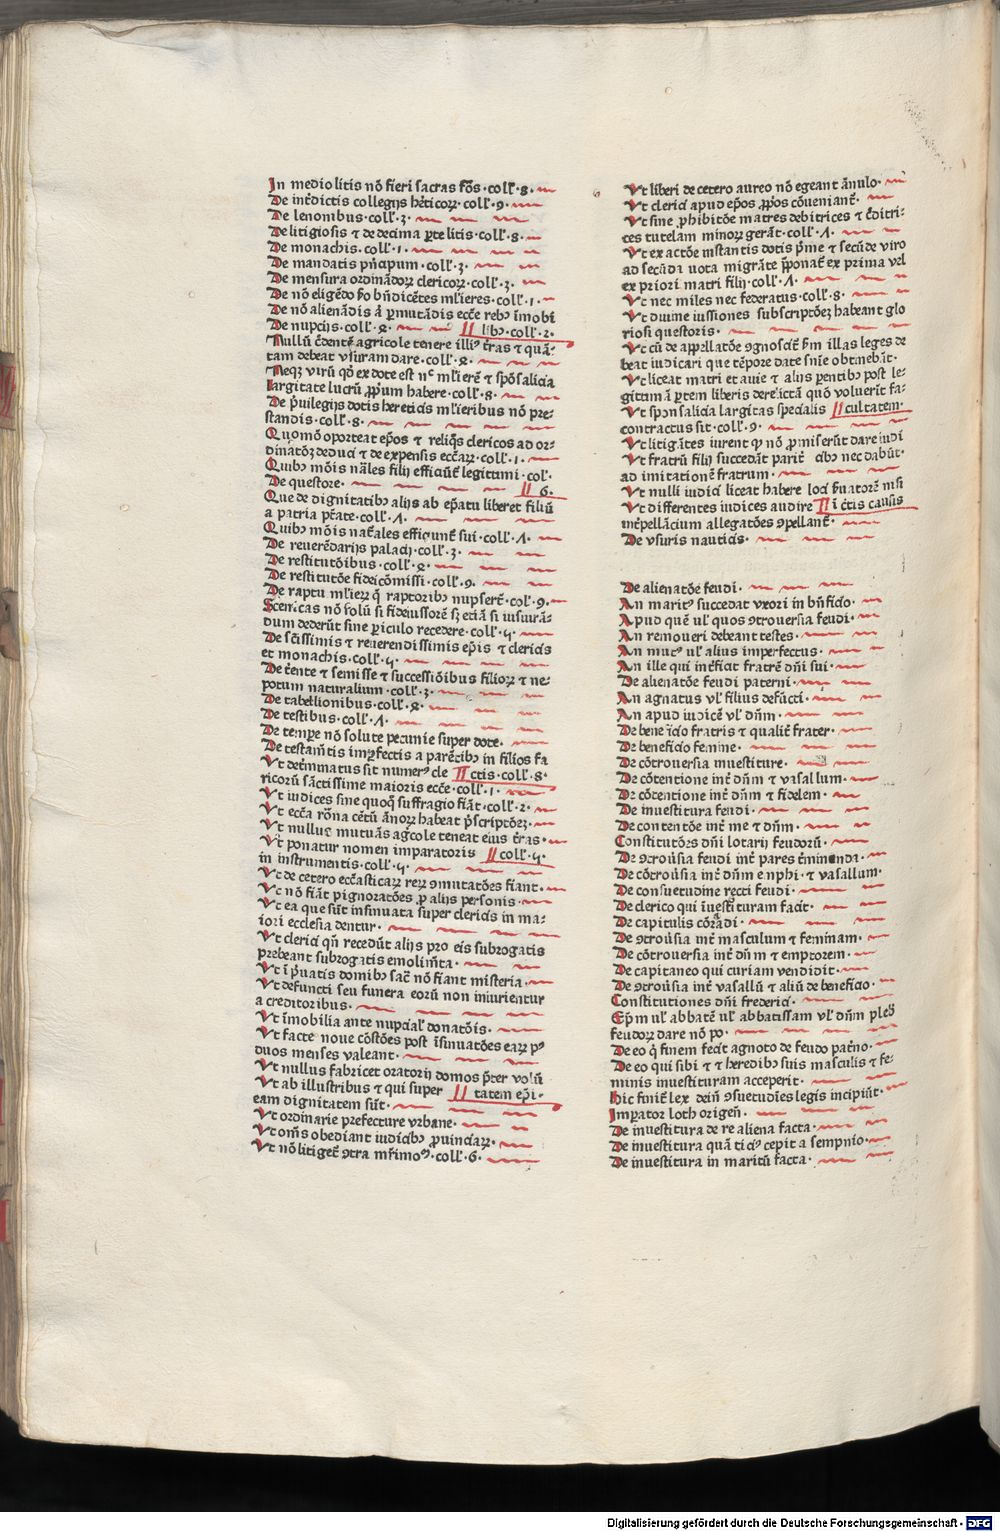 In mediolitis nō fieri sacras fōs·coll̄·8·
De int̄dictis collegijs h̄eticoꝝ·coll̄·9·
De lenonibus·coll̄·3·
De litigiosis ⁊ de decima ꝑte litis·coll̄·8·
De monachis·coll̄·1·
De mandatis pn̄cipum·coll̄·3·
De mensura ordinādoꝝ clericoꝝ·coll̄·3·
De nō eligēdo
De nō alienādis
De nupcijs·coll̄·2· libꝰ·coll̄·2·
Nullū c̄dentē agricole tenere illiꝰ t̄ras ⁊ quā-
tam debeat vsuram dare·coll̄·2·
Neqꝫ virū qd̓ ex dote est nᶜ ml̓ierē ⁊ spōsalicia
largitate lucrū ꝓpum habere·coll̄·8·
De pͥuilegijs dotis hereticis ml̓ieribus nō pre-
standis·coll̄·8·
Quomō oporteat ep̄os ⁊ reliqͦs clericos ad or-
dinatōꝫ deduci ⁊ de expensis ecc̄aꝝ·coll̄·1·
Quibꝰ mōis nāles filij efficiūt̄ legitimi·col̄·
De questore· 6·
Que de dignitatibꝰ alijs ab ep̄atu liberet filiū
a patria pt̄ate·coll̄·1·
Quibꝰ mōis nat̄ales efficiunt̄ sui·coll̄·1·
De reuerēdarijs palacij·coll̄·3·
De restitutōibus·coll̄·2·
De restitutōe fideicōmissi·coll̄·9·
De raptu ml̓ieꝝ q̄ raptoribꝰ nupserēt·col̄·9·
Scenicas nō solū si fideiussorē sꝫ eciā si iusiurā-
dum dederūt sine ꝑiculo recedere·coll̄·5·
De sc̄issimis ⁊ reuerendissimis ep̄is ⁊ clericis
et monachis·coll̄·5·
De t̄ente ⁊ semisse ⁊ successiōibus filioꝝ ⁊ ne-
potum naturalium·coll̄·3·
De tabellionibus·coll̄·2·
De testibus·coll̄·1·
De tempe nō solute pecunie super dote·
De testam̄tis imꝑfectis a parētibꝰ in filios fa
Vt det̄minatus sit numerꝰ cle ctis·coll̄·8·
ricorū sāctissime maioris ecc̄e·coll̄·1·
Vt iudices sine quoqͦ suffragio fiāt·coll̄·2·
Vt ecc̄a rōna cētū ānoꝝ habeat pͥscriptōeꝫ·
Vt nullus mutuās agͥcole teneat eius t̄ras·
Vt ponatur nomen imparatoris coll̄·5·
in instrumentis·coll̄·5·
Vt de cetero ecc̄asticaꝝ reꝝ ꝯmutatōes fiant·
Vt nō fiāt pignoratōes ꝓ alijs personis·
Vt ea que sūt insinuata super clericis in ma-
iori ecclesia dentur·
Vt clerici qn̄ recedūt alijs pro eis subrogatis
prebeant subrogatis emolim̄ta·
Vt ī pͥuatis domibꝰ sac̄ nō fiant misteria·
Vt defuncti seu funera eorū non iniurientur
a creditoribus·
Vt īmobilia ante nupcial̄ donatōis·
Vt facte noue cōstōes post īsinuatōes eaꝝ pꝰ
duos menses valeant·
Vt nullus fabricet oratorij domos pt̄er volū
Vt ab illustribus ⁊ qui super tatem ep̄i·
eam dignitatem sūt·
Vt ordinarie prefecture vrbane·
Vt om̄s obediant iudicibꝰ ꝓuinciaꝝ·
Vt nō litiget̄ ꝯtra mr̄imoꝰ·coll̄·6·
Vt liberi de cetero aureo nō egeant ānulo·
Vt clerici apud ep̄os ꝓpͥos cōueniant̄·
Vt sine ꝓhibitōe matres debitrices ⁊ c̄ditri-
ces tutelam minoꝝ gerāt·coll̄·1·
Vt exactōe instantis dotis pͥme ⁊ secūde viro
ad secūda uota migrāte p̄ponat̄ ex prima vel
ex priori matri filij·coll̄·1·
Vt nec miles nec federatus·coll̄·8·
Vt diuine iussiones subscriptōeꝫ habeant glo
riosi questoris·
Vt cū de appellatōe ꝯgnoscit̄ ẜm illas leges de
beat iudicari que tēpore date sn̄ie obtinebāt·
Vt liceat matri et auie ⁊ alijs ꝑentibꝰ post le-
gitimā ꝑtem liberis derelictā quō voluerīt fa-
Vt sponsalicia largitas specialis cultatem·
contractus sit·coll̄·9·
Vt litigātes iurent ꝙ nō ꝓmiserūt dare iudi
Vt fratrū filij succedāt parit̄ cibꝰ nec dabūt·
ad imitationē fratrum·
Vt nulli iudici liceat habere loci ẜuatorē nisi
Vt differentes iudices audire ī c̄tis causis
int̄pellācium allegatōes ꝯpellant̄·
De vsuris nauticis·
De alienatōe feudi·
An maritꝰ succedat vxori in bn̄ficio·
Apud quē ul̓ quos ꝯtrouersia feudi·
An remoueri debeant testes·
An mutꝰ ul̓ alius imperfectus·
An ille qui int̄ficit fratrē dn̄i sui·
De alienatōe feudi paterni·
An agnatus vl̓ filius defūcti·
An apud iudicē vl̓ dn̄m·
De beneficio fratris ⁊ qualit̄ frater·
De beneficio femine·
De cōtrouersia inuestiture·
De cōtentione int̄ dn̄m ⁊ vasallum·
De cōtentione int̄ dn̄m ⁊ fidelem·
De inuestitura feudi·
De contentōe int̄ me ⁊ dn̄m·
Constitutōes dn̄i lotarij feudorū·
De ꝯtrou̓sia feudi int̄ pares t̄minanda·
De cōtrou̓sia int̄ dn̄m enphi·⁊ vasallum·
De consuetudine recti feudi·
De clerico qui īuestituram facit·
De capitulis cōrādi·
De ꝯtrou̓sia int̄ masculum ⁊ feminam·
De cōtrouersia int̄ dn̄m ⁊ emptorem·
De capitaneo qui curiam vendidit·
De ꝯtrou̓sia int̄ vasallū ⁊ aliū de beneficio·
Constitutiones dn̄i frederici·
Ep̄m ul̓ abbatē ul̓ abbatissam vl̓ dn̄m
feudoꝝ dare nō po·
De eo qͥ finem fecit agnoto de feudo pat̄no·
De eo qui sibi ⁊ ⁊ heredibꝰ suis masculis ⁊ fe-
minis inuestituram acceperit·
Hic finit̄ lex dein̄ ꝯsuetudīes legis incipiūt·
Imperator loth origen̄·
De inuestitura de re aliena facta·
De inuestitura quā ticiꝰ cepit a sempnio·
De inuestitura in maritū facta·
Digitalisierung gefördert durch die Deutsche Forschungsgemeinschaft - DFG